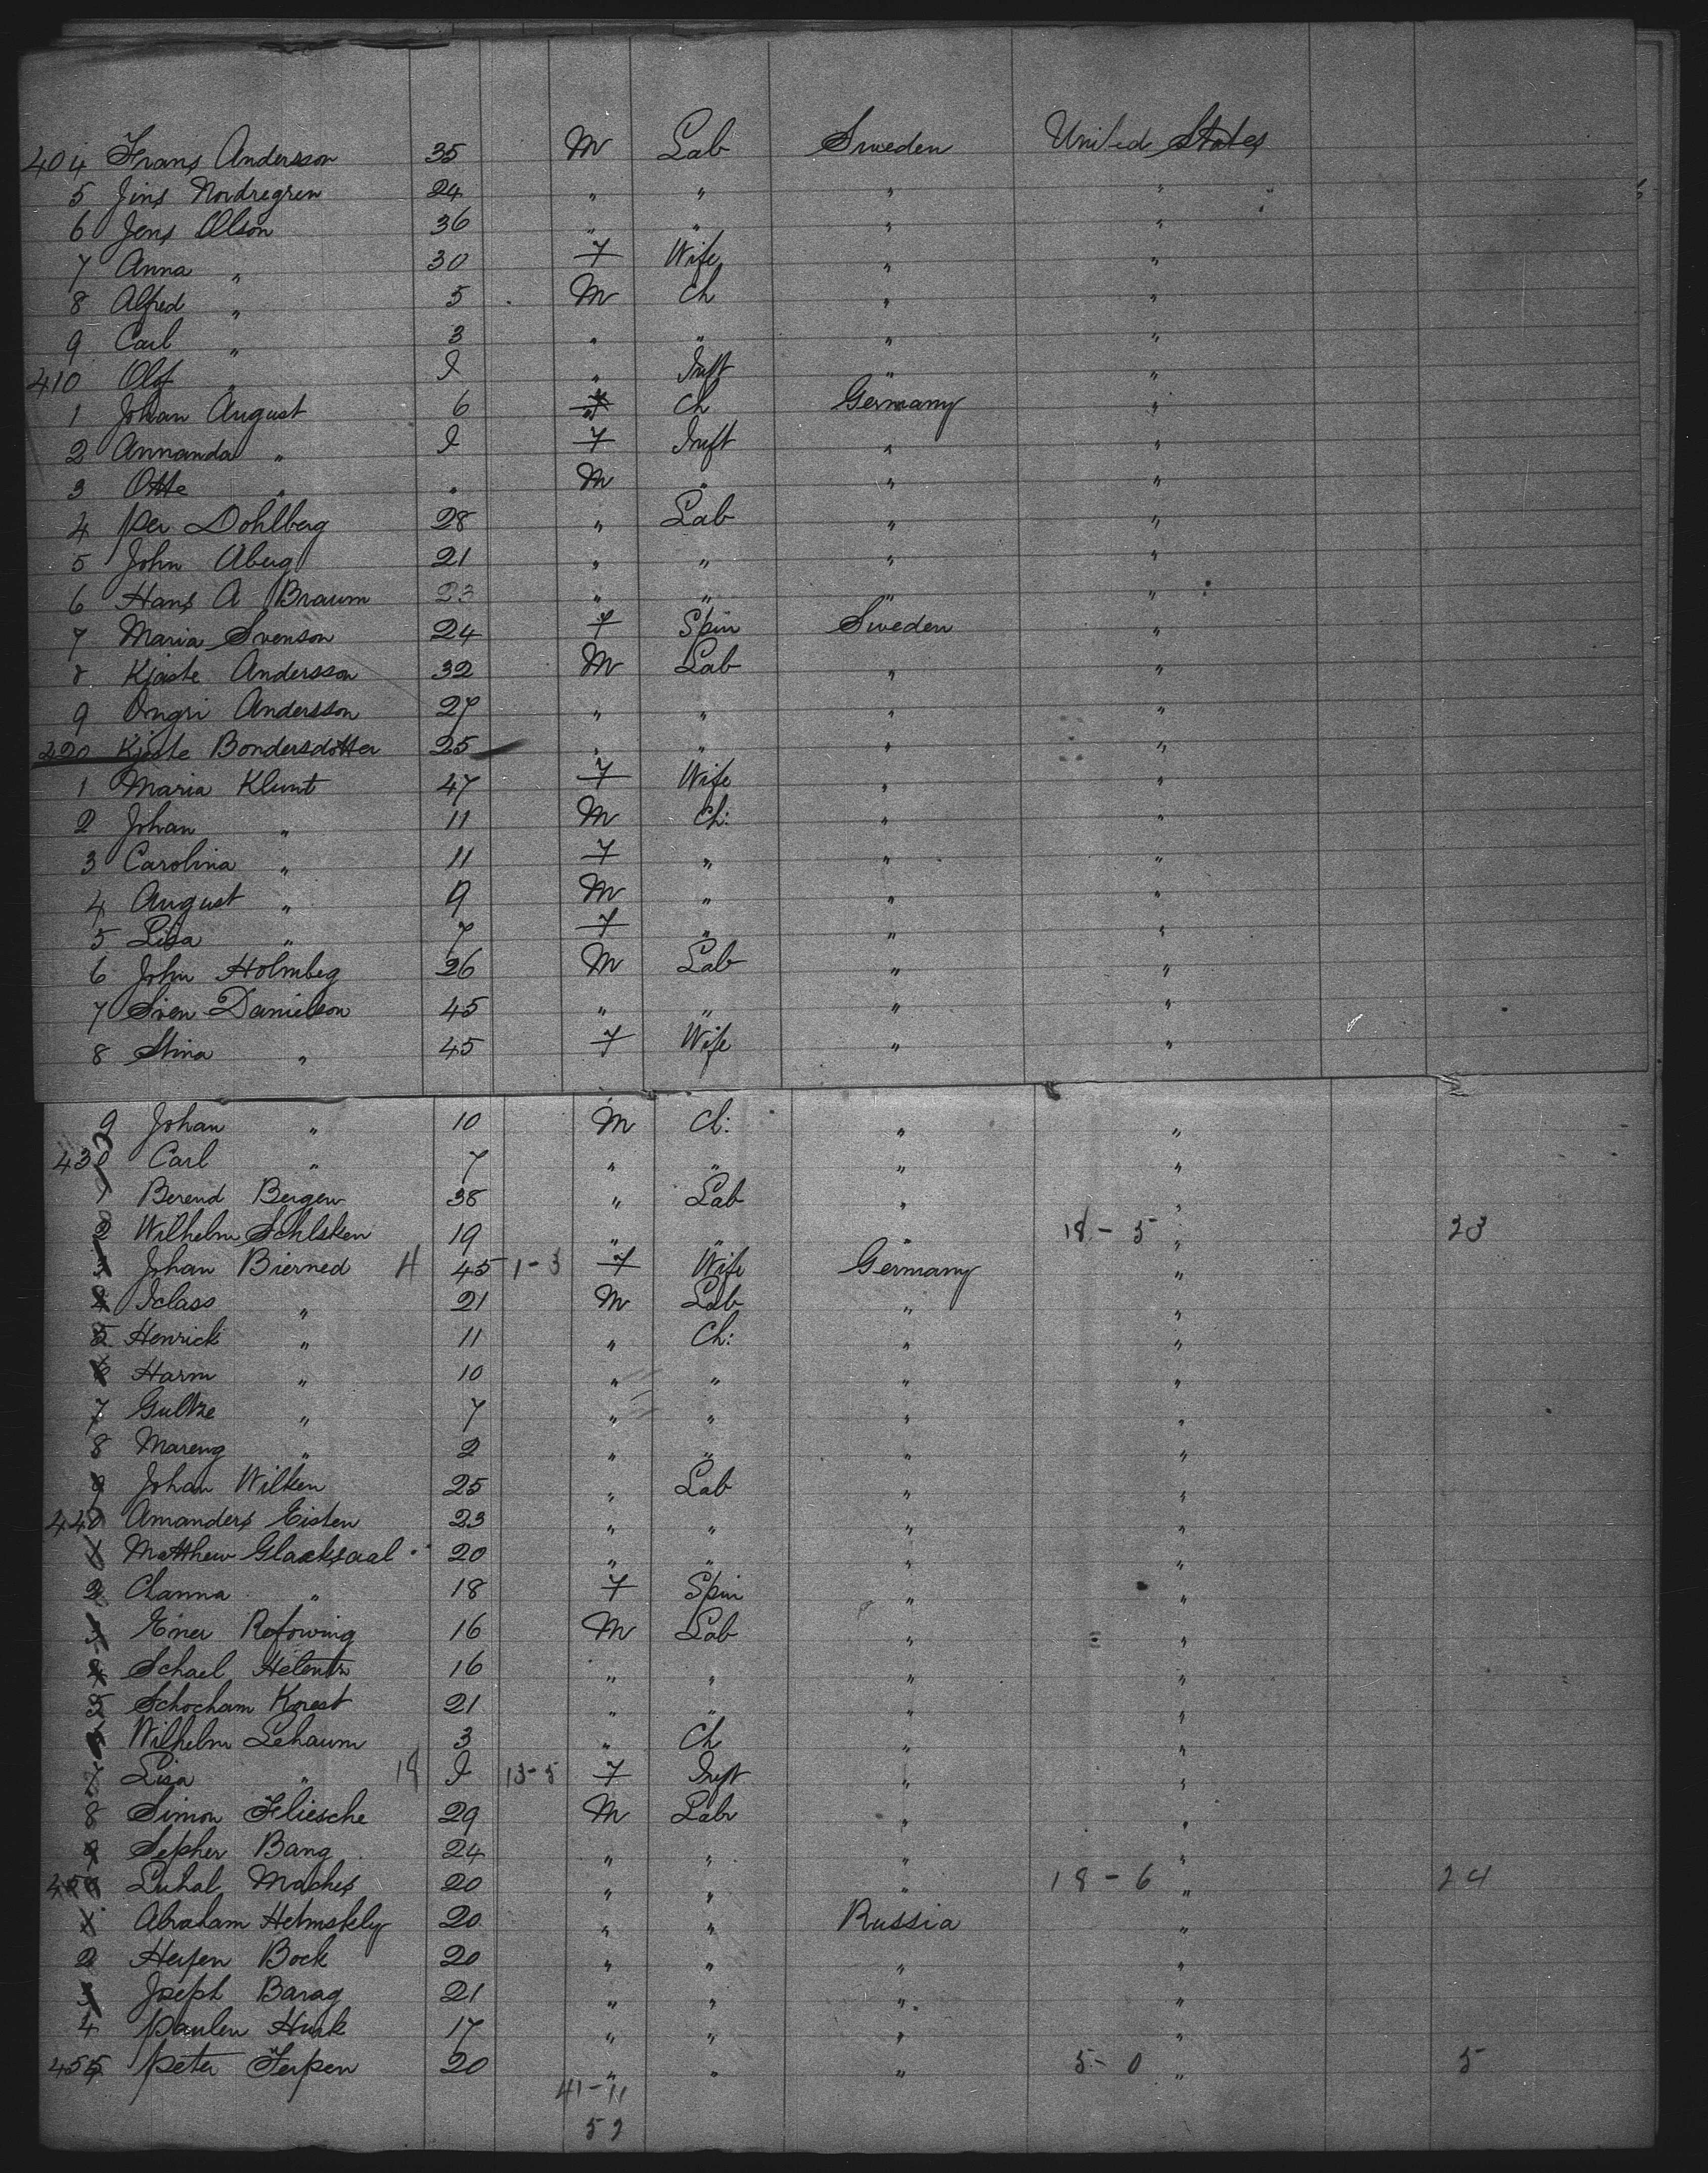 404 Frans Andersson 35 M Lab Sweden United States
5 Jins Nordregren 24 " " " "
6 Jens Olson 36 " " " "
7 Anna " 30 F Wife " "
8 Alfred " 5 M Ch " "
9 Carl " 3 " " " "
410 Olof " I " Inft " "
1 Johan August 6 F Ch Germany "
2 Annanda " I F Inft " "
3 Otte " " M " " "
4 Per Dohlberg 28 " Lab " "
5 John Aberg 21 " " " "
6 Hans A Braum 23 " " " "
7 Maria Svenson 24 F Spin Sweden "
8 Kjaste Andersson 32 M Lab " "
9 Ongri Andersson 27 " " " "
220 Kjaste Bondersdotter 25 " " " "
1 Maria Klunt 47 F Wife " "
2 Johan " 11 M Ch: " "
3 Carolina " 11 F " " "
4 August " 9 M " " "
5 Lisa " 7 F " " "
6 John Holmbeg 26 M Lab " "
7 Sven Danielson 45 " " " "
8 Stina " 45 F Wife " "
9 Johan " 10 M Ch: " "
430 Carl " 7 " " " "
1 Berend Bergen 38 " Lab " "
2 Wilhelm Schlsken 19 " " " 18-5 " 23
3 Johan Bierned H 45 1-3 F Wife Germany "
4 Iclass " 21 M Lab " "
5 Henrick " 11 " Ch: " "
6 Harm " 10 " " " "
7 Gultze " 7 " " " "
8 Mareng " 2 " " " "
9 Johan Wilken 25 " Lab " "
440 Amanders Eisten 23 " " " "
1 Matthew Glacksaal 20 " " " "
2 Channa " 18 F Spin " "
3 Einer Rofowing 16 M Lab " "
4 Schael 16 " " " "
5 Schocham Korest 21 " " " "
6 Wilhelm Lehaum 3 " Ch " "
7 Lisa " 18 I 13-5 F Inft " "
8 Simon Fliesche 29 M Lab " "
9 Sepher Bang 24 " " " "
450 Luhal Maches 20 " " " 18-6 " 24
1 Abraham Helmskely 20 " " Russia "
2 Heifen Bock 20 " " " "
3 Joseph Barag 21 " " " "
4 Paulen Hurk 17 " " " "
455 Peter Jerpen 20 " " " 5-0 " 5
41-11
59